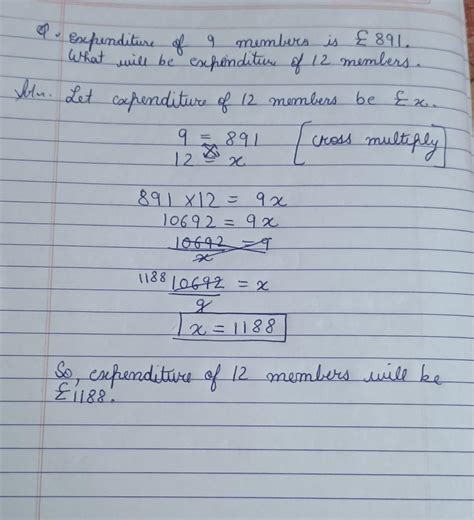 Q. Expenditure of 9 members is £891.
What will be expenditure of 12 members.
Soln. Let expenditure of 12 members be £x.
9 = 891 [cross multiply]
12 = x
891 × 12 = 9x
10692 = 9x
10692 = 9
x
1188 10692 = x
9
x = 1188
So, expenditure of 12 members will be
£1188.